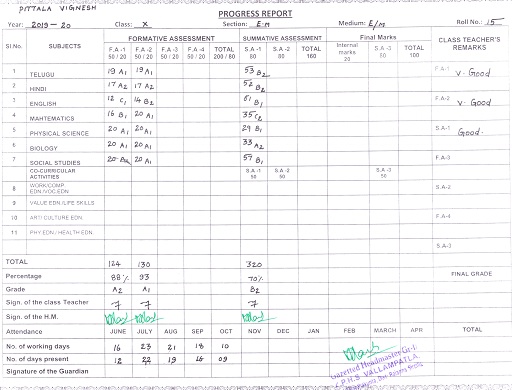 PITTALA VIGNESH
PROGRESS REPORT
Year: 2019 - 20 Class: X Section: E.M Medium: E/M Roll No: 15
Sl No. SUBJECTS FORMATIVE ASSESSMENT SUMMATIVE ASSESSMENT Final Marks CLASS TEACHER'S REMARKS
F.A -1 50 / 20 F.A -2 50 / 20 F.A -3 50 / 20 F.A -4 50 / 20 TOTAL 200 / 80 S.A -1 80 S.A -2 80 TOTAL 160 Internal marks 20 S.A -3 50 TOTAL 100
1 TELUGU 19 A1 19 A1 53 B2 F.A -1 V. Good
2 HINDI 17 A2 17 A2 52 B2
3 ENGLISH 12 C1 14 B2 51 B1 F.A -2 V. Good
4 MAHTEMATICS 16 B1 20 A1 35 C2
5 PHYSICAL SCIENCE 20 A1 20 A1 29 B1 S.A -1 Good.
6 BIOLOGY 20 A1 20 A1 33 A2
7 SOCIAL STUDIES 20 20 A1 57 B1 F.A -3
CO-CURRICULAR ACTIVITIES S.A -1 50 S.A -2 50 S.A -3 50
8 WORK/COMP. EDN./VOC.EDN S.A -2
9 VALUE EDN./LIFE SKILLS
10 ART/ CULTURE EDN F.A -4
11 PHY.EDN / HEALTH EDN.
S.A -3
TOTAL 124 130 320
Percentage 88% 93 70% FINAL GRADE
Grade A2 A1 B2
Sign. of the class Teacher
Sign. of the H.M.
Attendance JUNE JULY AUG SEP OCT NOV DEC JAN FEB MARCH APR TOTAL
No. of working days 16 23 21 18 10
No. of days present 12 22 19 16 09
Signature of the Guardian
Gazetted Headmaster Gr-I
Z.P.H.S VALLAMPATLA